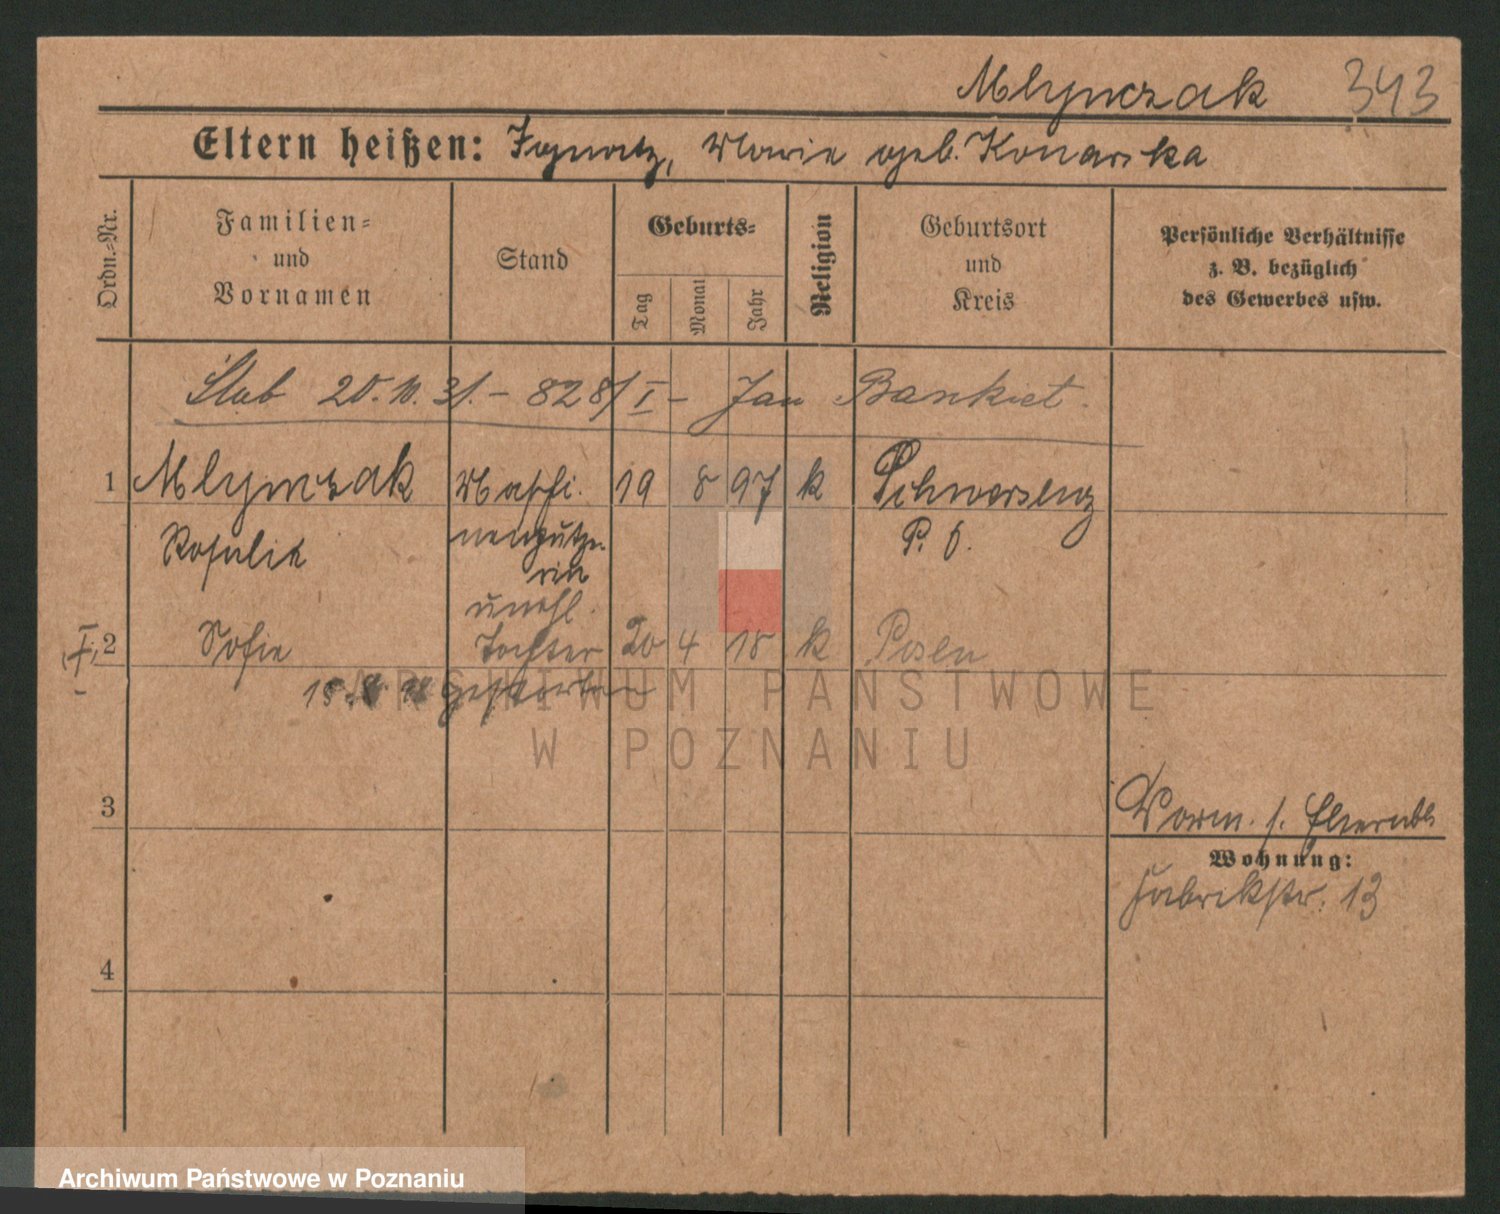 Mlynczak 343
Eltern heißen: Ignatz, Marie geb. Konarska
Ordn.=Nr.
Familien=
und
Vornamen
Stand
Geburts=
Tag
Monat
Jahr
Religion
Geburtsort
und
Kreis
Persönliche Verhältnisse
z. B. bezüglich
des Gewerbes usw.
Ślub 20.10.31. - 828/I - Jan Bankiet.
1 Mlynczak Maschi- 19 8 97 k Schwersenz
Rosalie nenputze- P. O.
rin
unehl.
2 Sofie Tochter 20 4 18 k Posen
gestorben
3
Vorm. s. Elternbl.
Wohnung:
Fabrikstr. 13
4
ARCHIWUM PAŃSTWOWE
W POZNANIU
Archiwum Państwowe w Poznaniu